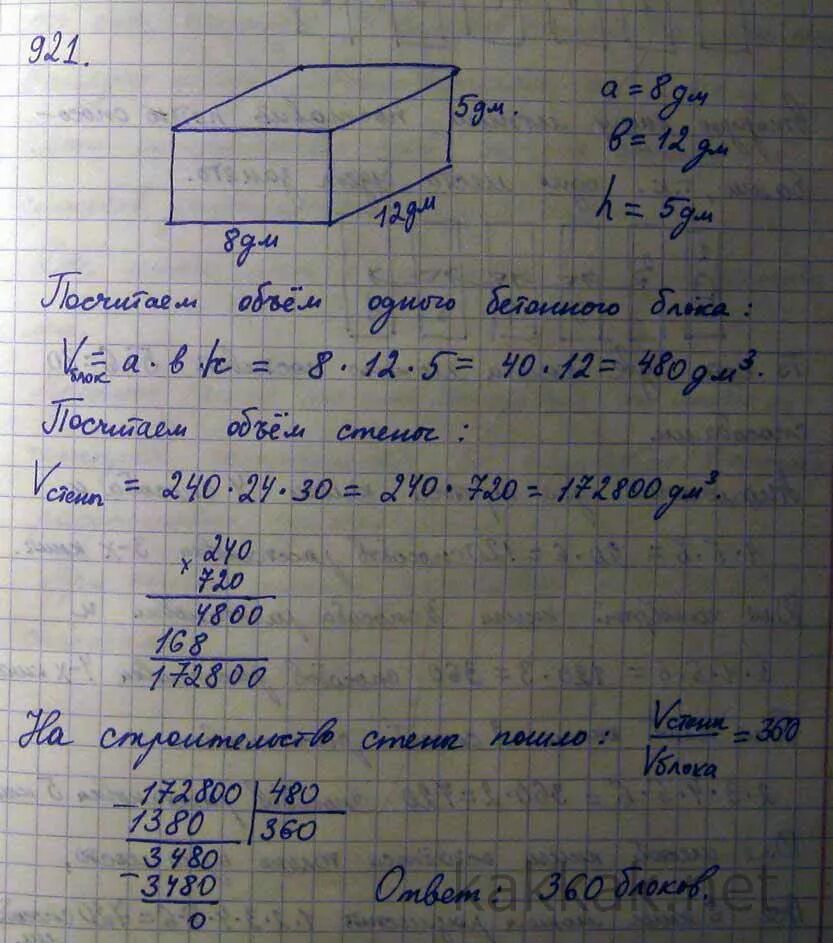 921.
5дм.
a = 8дм
в = 12 дм
h = 5дм
12дм
8дм
Посчитаем объём одного бетонного блока :
Vблок = a · в · h = 8 · 12 · 5 = 40 · 12 = 480 дм³.
Посчитаем объём стены :
Vстены = 240 · 24 · 30 = 240 · 720 = 172800 дм³.
× 240
720
4800
168
172800
На строительство стены пошло : Vстены / Vблока = 360
172800 | 480
1380 | 360
3480
3480
0
Ответ : 360 блоков.
kakkak.net